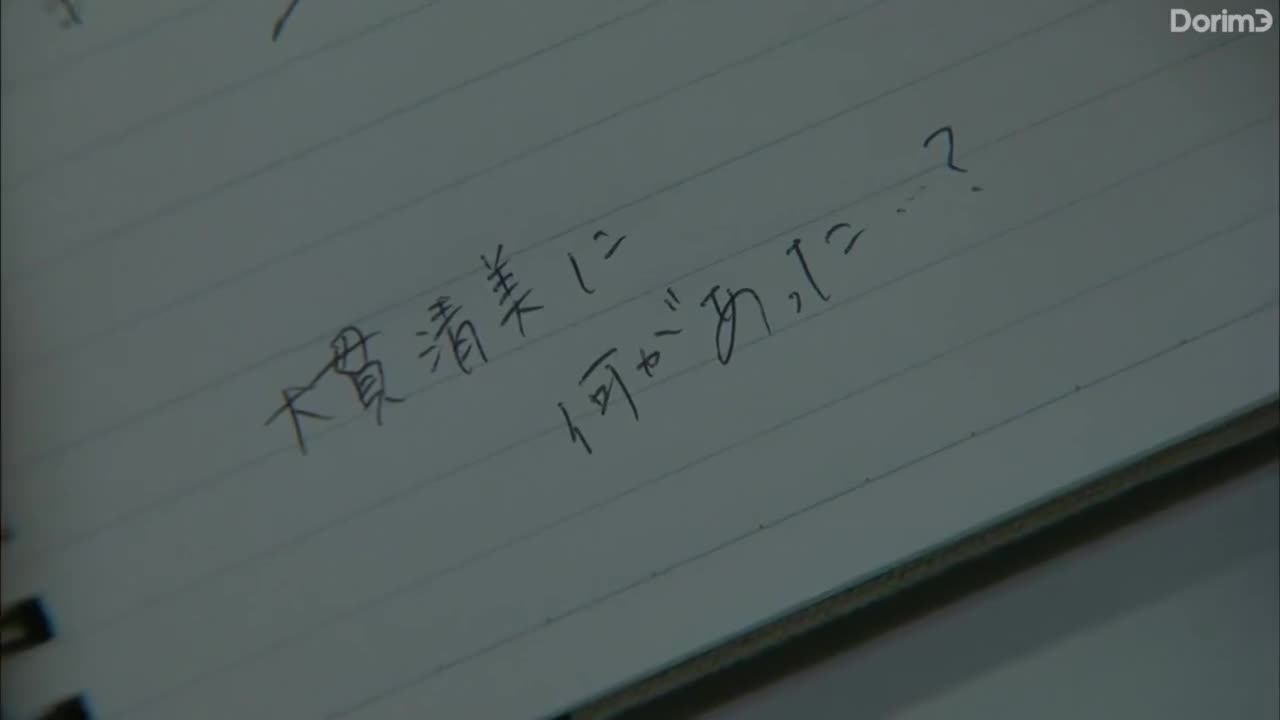 Dorim3
大貫清美に
何があった…?